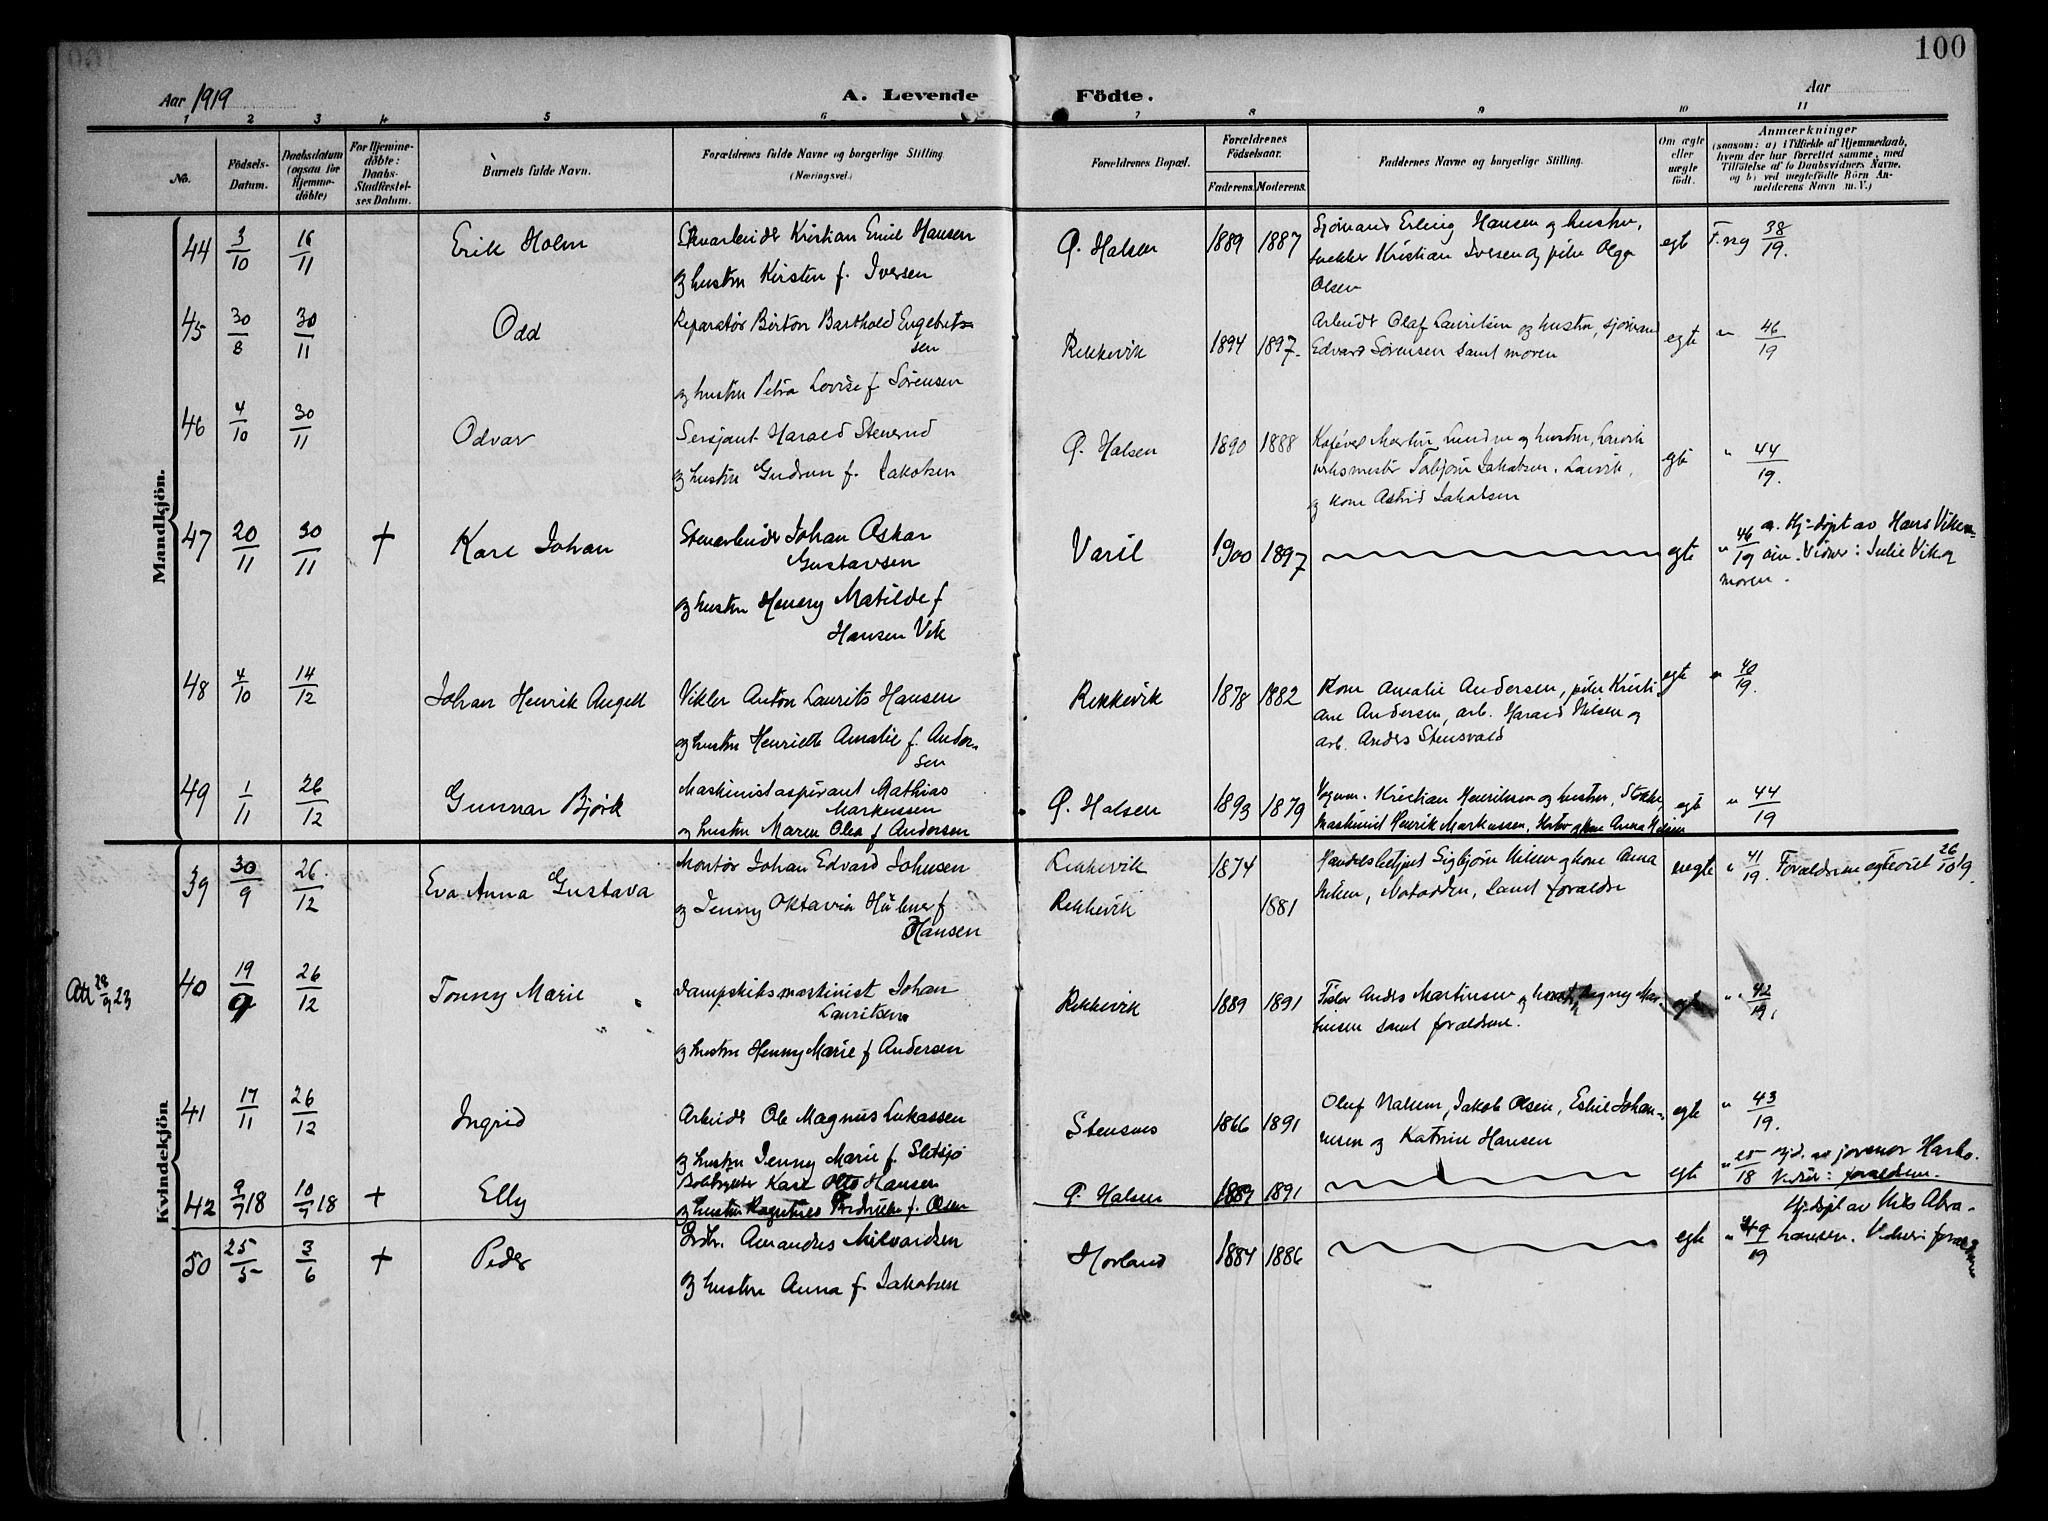 100
Aar 1919
A. Levende Födte.
Aar
1 2 3 4 5 6 7 8 9 10 11
No.
Födsels-Datum.
Daabsdatum (ogsaa for Hjemme-döbte)
For Hjemme-döbte: Daabs-Stadfæstel-ses Datum.
Barnets fulde Navn.
Forældrenes fulde Navne og borgerlige Stilling (Næringsvei.)
Forældrenes Bopæl.
Forældrenes Födselsaar.
Faderens. Moderens.
Faddernes Navne og borgerlige Stilling.
Om ægte eller uægte födt.
Anmærkninger
(saasom: a) i Tilfælde af Hjemmedaab, hvem der har forrettet samme, med Tilföielse af to Daabsvidners Navne, og b) ved uegtefödte Börn An-melderens Navn m. V.)
Mandkjön.
44 3/10 16/11 Erik Holm
Kristian Emil Hansen
og hustru Kirsten f. Iversen
Ø. Halsen 1889 1887
Sjömand Erling Hansen og hustru,
Kristian Iversen og pike Olga
Olsen
egte F.reg 38/19.
45 30/8 30/11 Odd
Reparatör Berton Barthold Engebret-
sen
og hustru Petra Lovise f Sörensen
Rekkevik 1894 1897.
Arbeider Olaf Lauritsen og hustru, sjömand
Edvard Sörensen samt moren
egte " 46/19
46 4/10 30/11 Odvar
Sersjant Harald Stenerud
og hustru Gudrun f. Jakobsen
Ø. Halsen 1890 1888
Martin Lunden og hustru, Larvik
Torbjörn Jakobsen, Larvik,
og kone Astrid Jakobsen
egte " 44/19.
47 20/11 30/11 + Karl Johan
Stenarbeider Johan Oskar
Gustavsen
og hustru Henny Matilde f
Hansen Vik
Varil 1900 1897
egte " 46/19 a. Hj-döpt av Hans Viken-
Vidner: Julie Vik og
moren.
48 4/10 14/12 Johan Henrik Angell
Vikler Anton Laurits Hansen
og hustru Henriette Amalie f. Ander-
sen
Rekkevik 1878 1882
Kone Amalie Andersen, pike Kristi
ane Andersen, arb. Harald Nilsen og
arb. Anders Stensvold
egte " 40/19.
49 1/11 26/12 Gunnar Björk
Maskinistaspirant Mathias
Markussen
og hustru Maren Olea f Andersen
Ø. Halsen 1893 1879
Kristian Henriksen og hustru, Stokke
Maskinist Henrik Markussen, kone Anna Nilsen
egte " 44/19
Kvindekjön
39 30/9 26/12 Eva Anna Gustava
Montör Johan Edvard Johnsen
og Jenny Oktavia Hübner f
Hansen
Rekkevik 1874
Rekkevik 1881
Handelsbetjent Sigbjörn Nilsen og kone Anna
Nilsen, Notodden, samt foraldre
uegte " 41/19 Foraldrene egteviet 26/10 19.
Att 28/9 23
40 19/9 26/12 Tonny Marie
Dampskibsmaskinist Johan
Lauritsen
og hustru Henny Marie f Andersen
Rekkevik 1889 1891
Anders Martinsen og hustru Dagny Mar-
tinsen samt foraldrene.
egte " 42/19.
41 17/11 26/12 Ingrid
Arbeider Ole Magnus Lukassen
og hustru Jenny Marie f. Sletsjö
Stensnes 1866 1891
Oluf Jakob Olsen, Johan-
nesen og Katrine Hansen
egte " 43/19.
42 9/7 18 10/7 18 + Elly
Karl Otto Hansen
og hustru Fredrikke f. Olsen
Ø. Halsen 1889 1891
egte " 25/18 Hj.d. av jormor Harbo.
Vidner: foraldrene.
50 25/5 3/6 + Peder
Amandus Milvardsen
og hustru Anna f. Jakobsen
Hovland 1884 1886
egte " 49/19 Hj.döpt av Nils Abra-
hamsen. Vidner: foraldrene